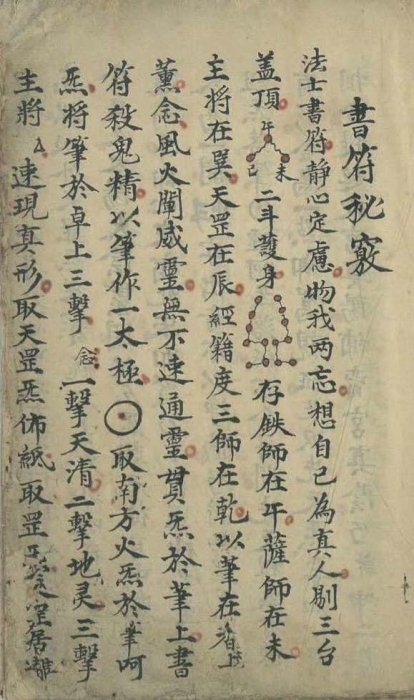 書符秘竅
法士書符靜心定慮物我两忘想自己為真人剔三台
盖頂午未己二斗護身存鉄師在午薩師在未
主將在巽天罡在辰經籍度三師在乾以筆在香上
薰念風火闡威靈無不速通靈貫炁於筆上書
符殺鬼精以筆作一太極取南方火炁於筆呵
炁將筆於卓上三擊念一擊天清二擊地灵三擊
主將速現真形取天罡炁佈紙取罡炁罡居離